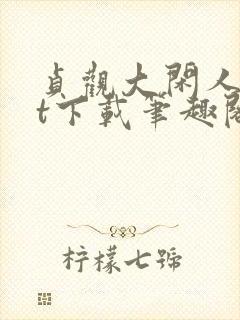 貞觀大閑人
t下載筆趣閣
柠檬七號